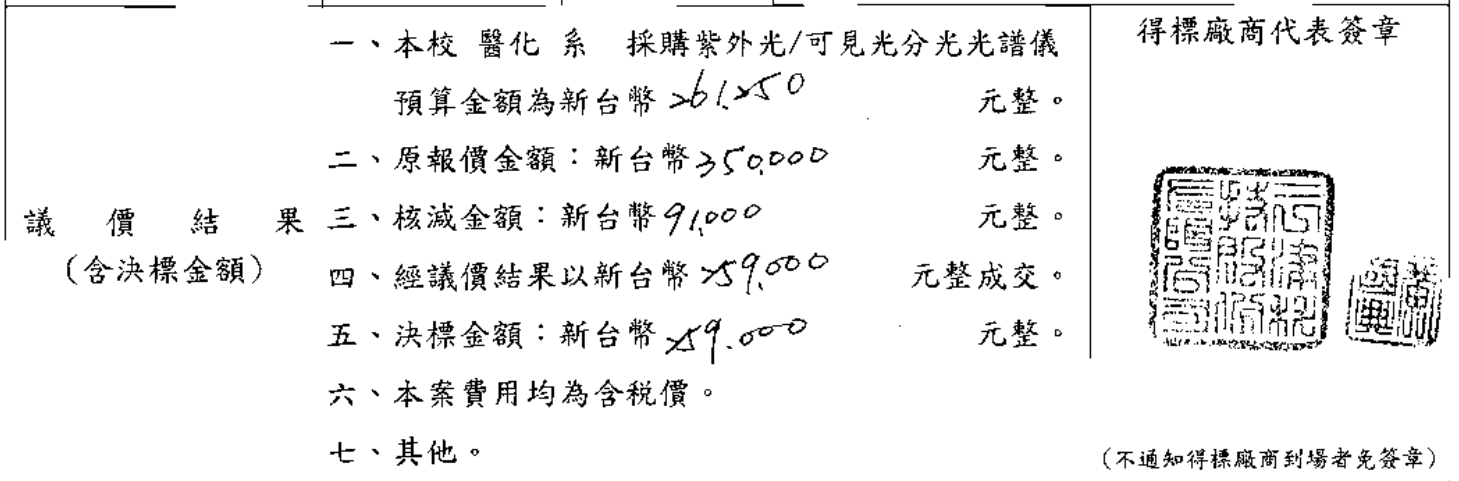 一、本校 醫化 系 採購紫外光/可見光分光光譜儀
預算金額為新台幣 261,250 元整。
二、原報價金額：新台幣 350,000 元整。
三、核減金額：新台幣 91,000 元整。
四、經議價結果以新台幣 259,000 元整成交。
五、決標金額：新台幣 259,000 元整。
六、本案費用均為含稅價。
七、其他。
議價結果
（含決標金額）
得標廠商代表簽章
（不通知得標廠商到場者免簽章）